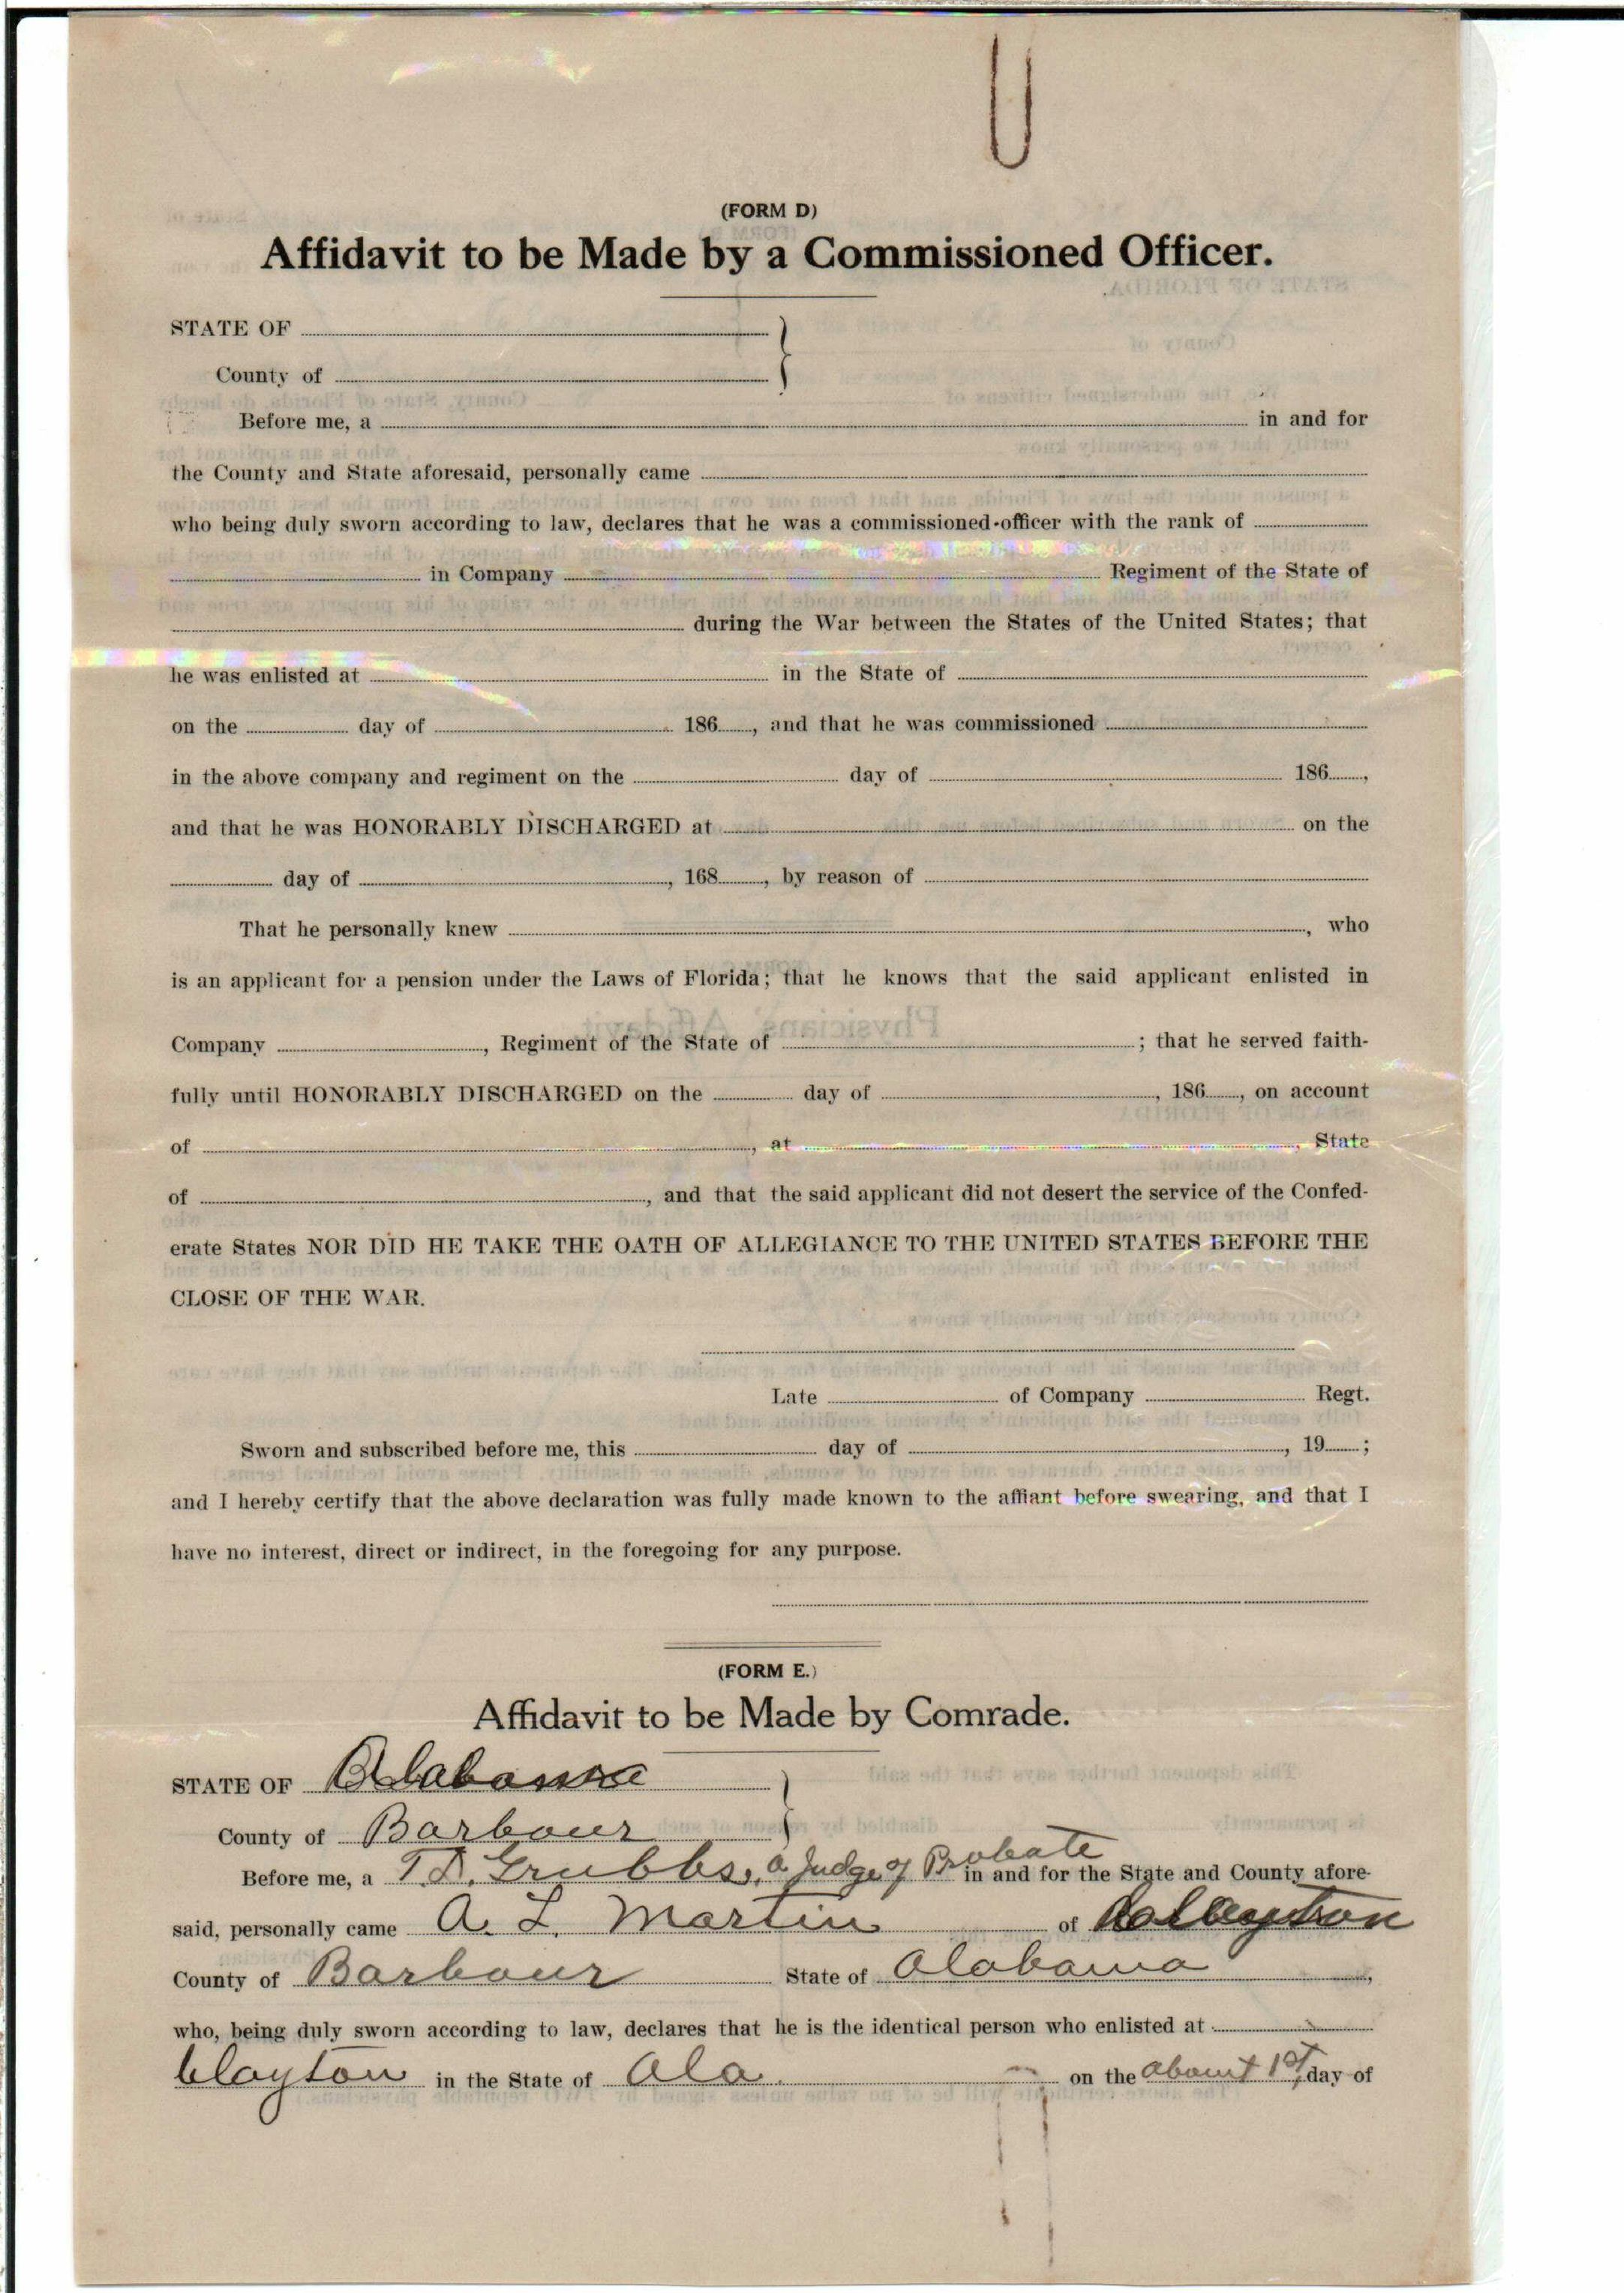 (FORM D)
Affidavit to be Made by a Commissioned Officer.
STATE OF
County of
Before me, a in and for
the County and State aforesaid, personally came
who being duly sworn according to law, declares that he was a commissioned-officer with the rank of
in Company Regiment of the State of
during the War between the States of the United States; that
he was enlisted at in the State of
on the day of 186, and that he was commissioned
in the above company and regiment on the day of 186,
and that he was HONORABLY DISCHARGED at on the
day of , 168, by reason of
That he personally knew , who
is an applicant for a pension under the Laws of Florida; that he knows that the said applicant enlisted in
Company , Regiment of the State of ; that he served faith-
fully until HONORABLY DISCHARGED on the day of , 186, on account
of , at , State
of , and that the said applicant did not desert the service of the Confed-
erate States NOR DID HE TAKE THE OATH OF ALLEGIANCE TO THE UNITED STATES BEFORE THE
CLOSE OF THE WAR.
Late of Company Regt.
Sworn and subscribed before me, this day of , 19 ;
and I hereby certify that the above declaration was fully made known to the affiant before swearing, and that I
have no interest, direct or indirect, in the foregoing for any purpose.
(FORM E.)
Affidavit to be Made by Comrade.
STATE OF Alabama
County of Barbour
Before me, a T. D. Grubbs, a Judge of Probate in and for the State and County afore-
said, personally came A. L. Martin of Clayton
County of Barbour State of Alabama,
who, being duly sworn according to law, declares that he is the identical person who enlisted at
Clayton in the State of Ala. on the about 1st day of